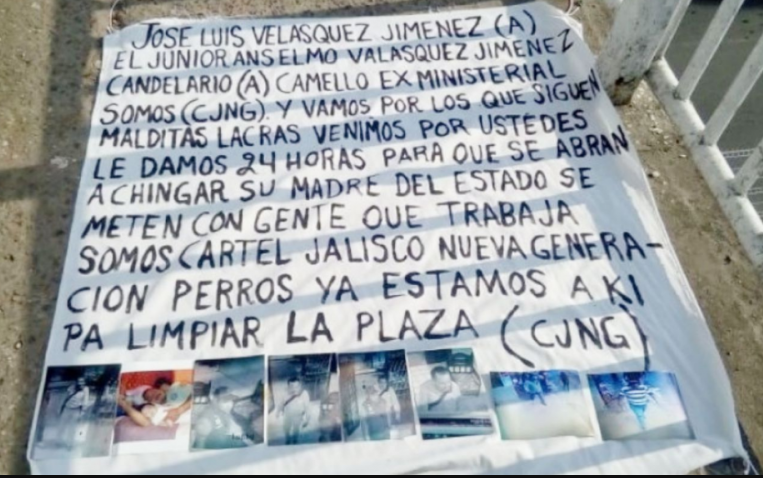 JOSE LUIS VELASQUEZ JIMENEZ (A)
EL JUNIOR ANSELMO VALASQUEZ JIMENEZ
CANDELARIO (A) CAMELLO EX MINISTERIAL
SOMOS (CJNG). Y VAMOS POR LOS QUE SIGUEN
MALDITAS LACRAS VENIMOS POR USTEDES
LE DAMOS 24 HORAS PARA QUE SE ABRAN
A CHINGAR SU MADRE DEL ESTADO SE
METEN CON GENTE QUE TRABAJA
SOMOS CARTEL JALISCO NUEVA GENERA-
CION PERROS YA ESTAMOS A KI
PA LIMPIAR LA PLAZA (CJNG)